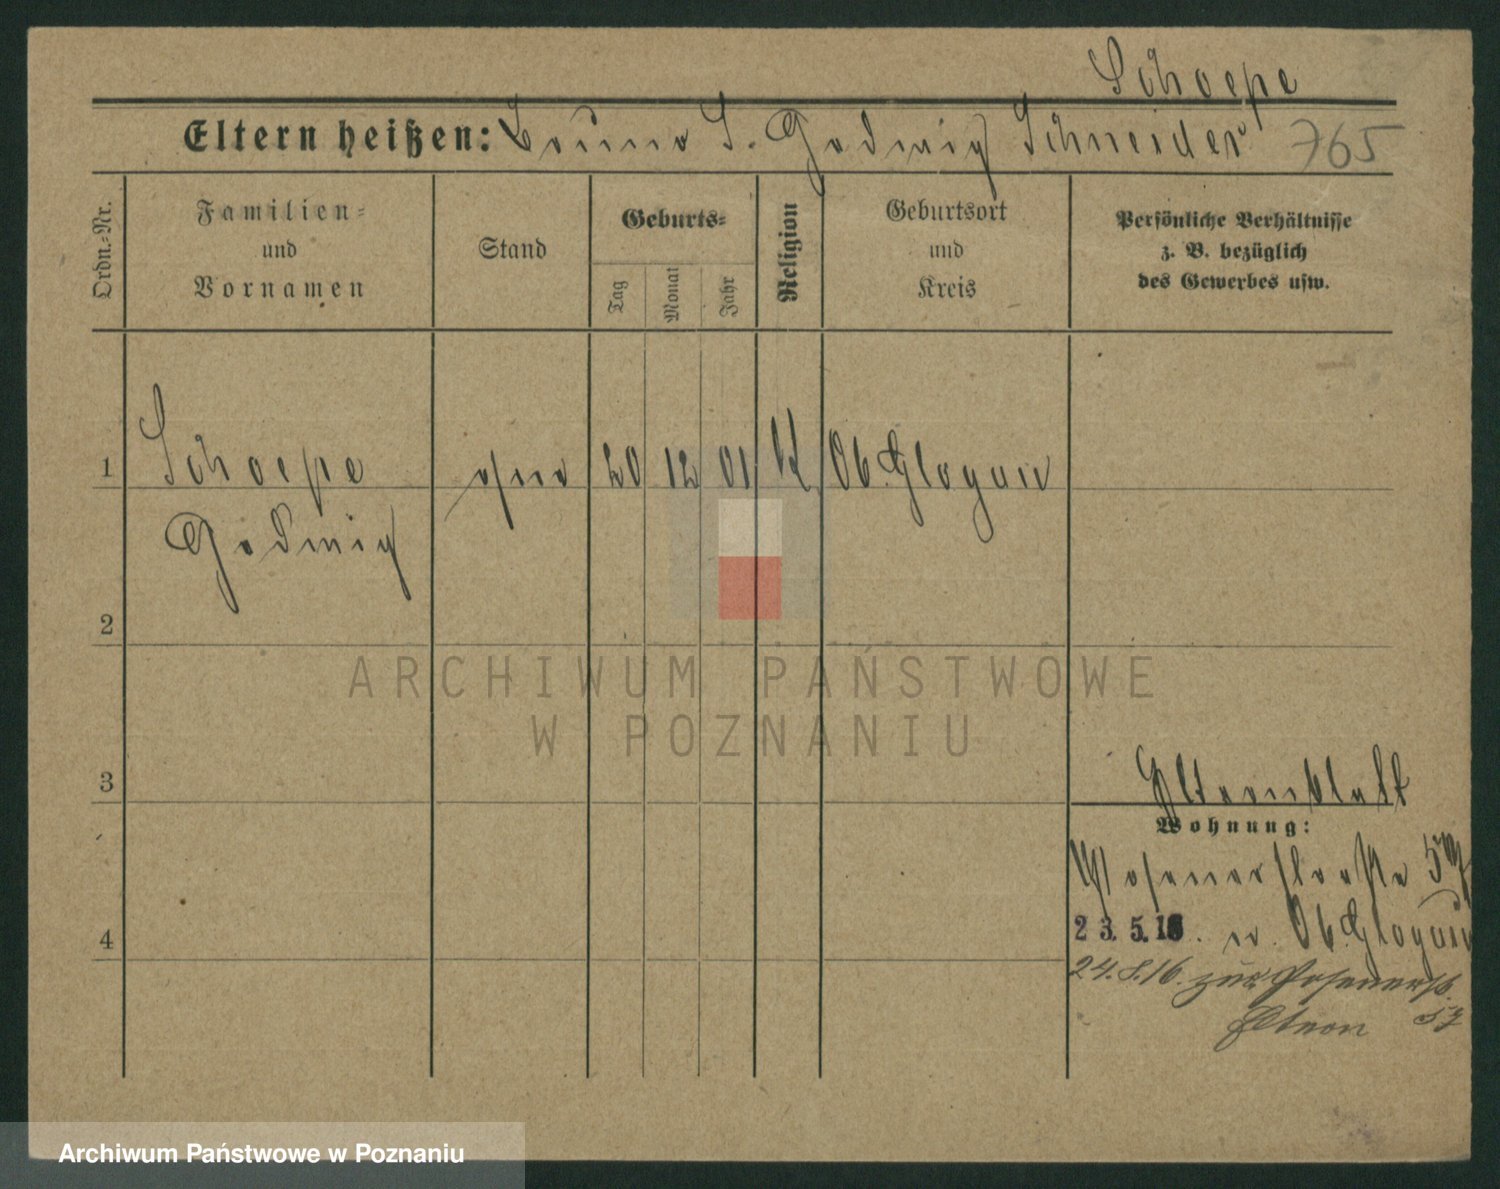 Schoepe
Eltern heißen: Bruno S. Hedwig Schneider 765
Ordn.-Nr.
Familien-
und
Vornamen
Stand
Geburts-
Tag
Monat
Jahr
Religion
Geburtsort
und
Kreis
Persönliche Verhältnisse
z. B. bezüglich
des Gewerbes usw.
1 Schoepe 20 12 01 K Ob. Glogau
Hedwig
2
3
4
ARCHIWUM PAŃSTWOWE
W POZNANIU
Elternblatt
Wohnung:
Posenerstraße 57
23.5.16. n. Ob. Glogau
24.8.16. zur. Posenerst.
57
Eltern
Archiwum Państwowe w Poznaniu